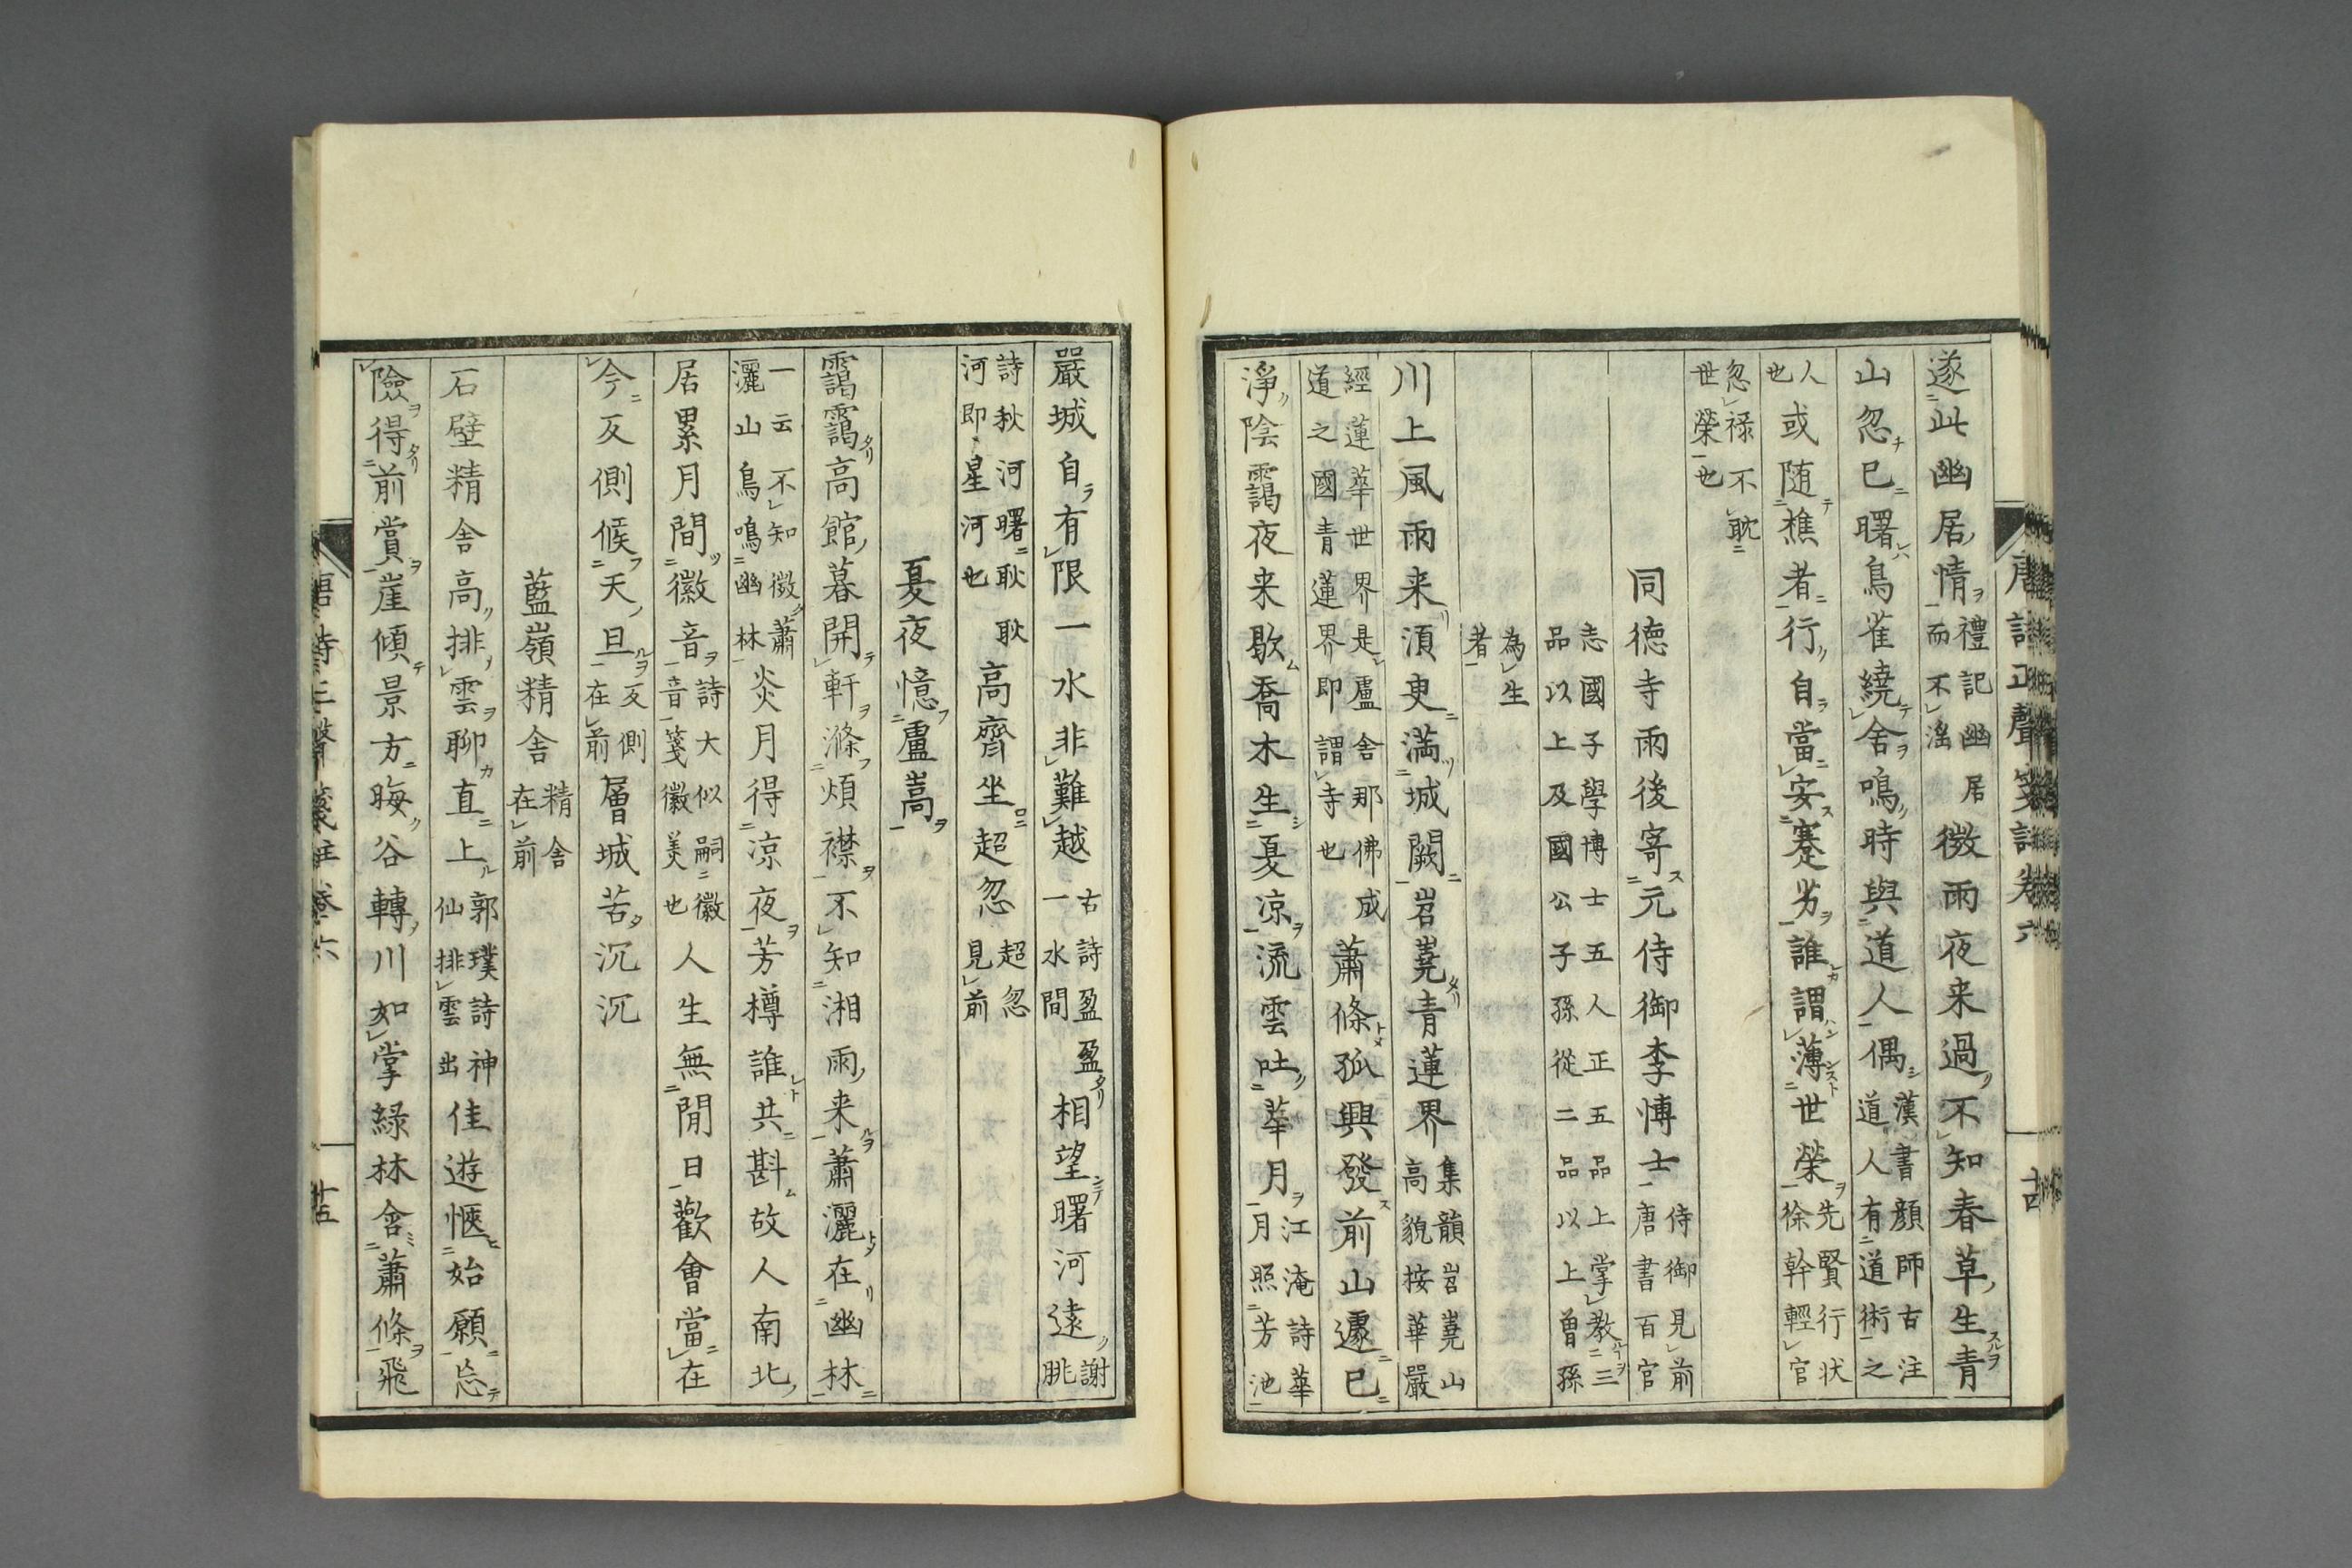 唐詩正聲箋註卷六
遂此幽居情禮記幽居而不淫微雨夜来過不知春草生青
山忽已曙鳥雀繞舍鳴時與道人偶漢書顔師古注道人有道術之
人也或随樵者行自當安蹇劣誰謂薄世榮先賢行状徐幹輕官
忽禄不耽世榮也
同徳寺雨後寄元侍御李博士侍御見前唐書百官
志國子學博士五人正五品上掌教三品以上及國公子孫從二品以上曽孫
為生者
川上風雨来湏臾満城闕岧嶤青蓮界集韻岧嶤山高貌按華嚴
經蓮華世界是盧舍那佛成道之國青蓮界即謂寺也蕭條孤興發前山遽已
淨陰靄夜来歇喬木生夏凉流雲吐華月江淹詩華月照芳池
嚴城自有限一水非難越古詩盈盈一水間相望曙河遠謝朓
詩秋河曙耿耿河即星河也高齊坐超忽超忽見前
夏夜憶盧嵩
靄靄高館暮開軒滌煩襟不知湘雨来蕭灑在幽林
一云不知微蕭灑山鳥鳴幽林炎月得凉夜芳樽誰共斟故人南北
居累月間徽音詩大似嗣徽音箋徽美也人生無閒日歡會當在
今反側候天旦反側在前層城苦沉沉
藍嶺精舎精舎在前
石壁精舎高排雲聊直上郭璞詩神仙排雲出佳遊愜始願忘
險得前賞崖傾景方晦谷轉川如掌緑林含蕭條飛